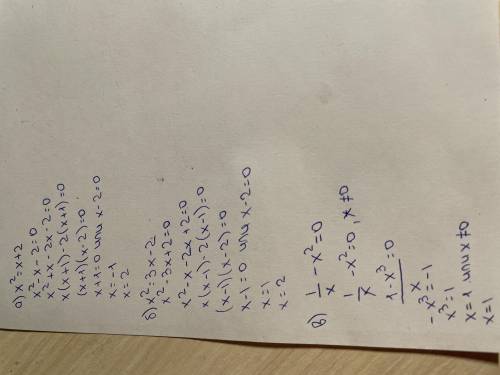 а) x²=x+2
x²-x-2=0
x²+x-2x-2=0
x(x+1)-2(x+1)=0
(x+1)(x-2)=0
x+1=0 или x-2=0
x=-1
x=2
б) x²=3x-2
x²-3x+2=0
x²-x-2x+2=0
x(x-1)-2(x-1)=0
(x-1)(x-2)=0
x-1=0 или x-2=0
x=1
x=2
в) 1/x - x²=0
1/x - x²=0, x≠0
(1-x³)/x=0
-x³=-1
x³=1
x=1 или x≠0
x=1